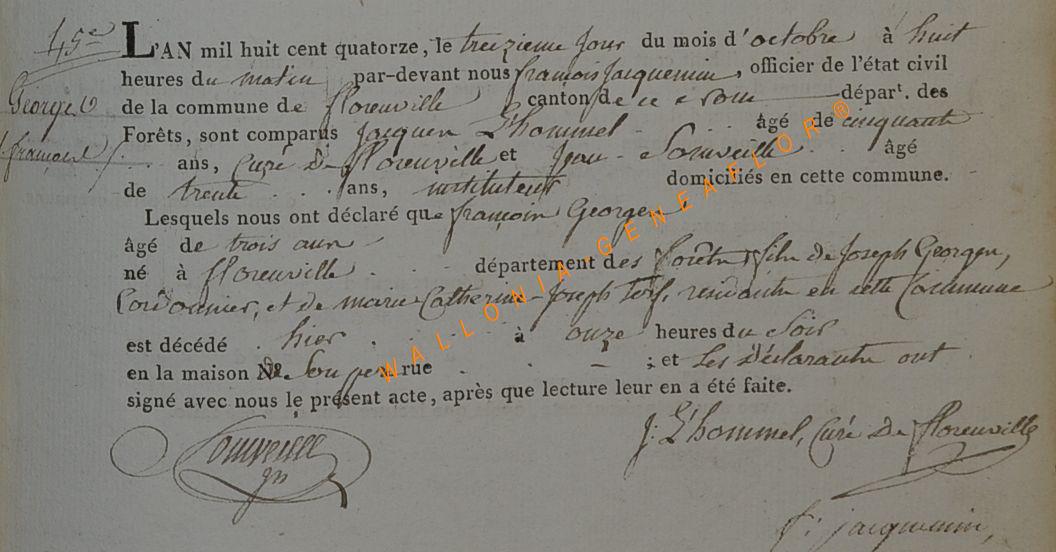 45e
L'AN mil huit cent quatorze, le treizieme jour du mois d'octobre à huit
George
françois
heures du matin par-devant nous françois Jacquemin, officier de l'état civil
de la commune de florenville canton de ce nom départ. des
Forêts, sont comparus Jacques L'hommel âgé de cinquante
ans, Curé de florenville et Jean Somveille âgé
de trente ans, instituteur domiciliés en cette commune.
Lesquels nous ont déclaré que françois Georges
âgé de trois ans
né à florenville département des forêts, fils de Joseph Georges,
Cordonnier, et de marie Catherine Joseph residants en cette Commune
est décédé hier à onze heures du Soir
en la maison de Son pere rue ; et Les déclarants ont
signé avec nous le présent acte, après que lecture leur en a été faite.
Somveille
J: L'hommel, Curé de florenville
f: jacquemin,
WALLONIA-GENEAFLOR ®